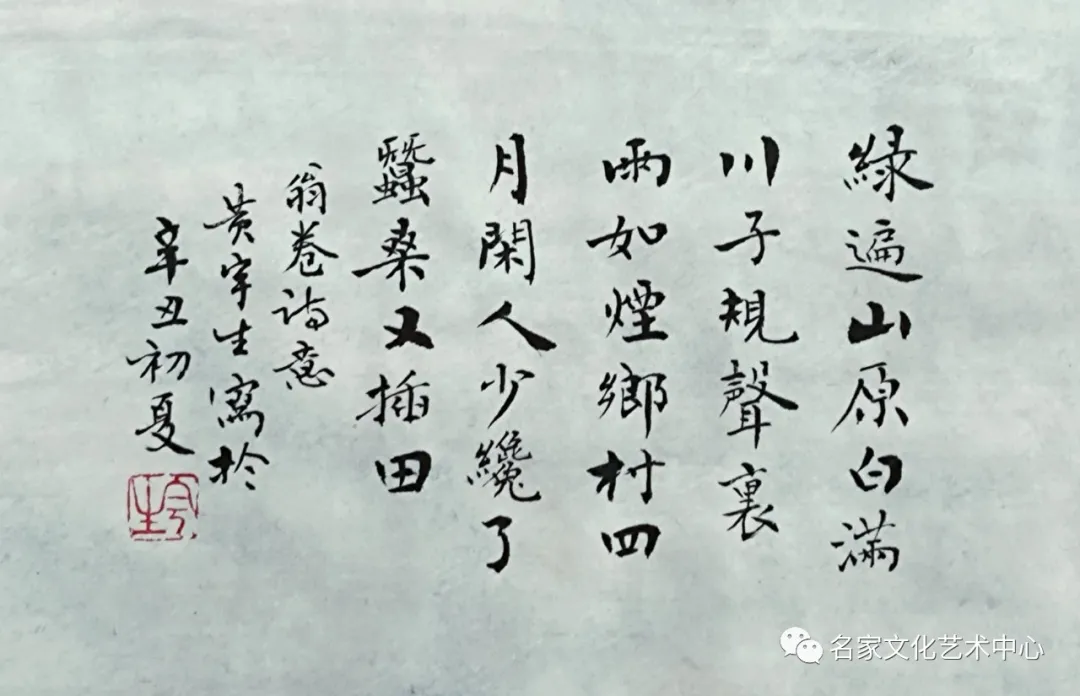 綠遍山原白滿
川子規聲裏
雨如煙鄉村四
月閑人少纔了
蠶桑又插田
翁卷诗意
黄宇生寫於
辛丑初夏
名家文化艺术中心